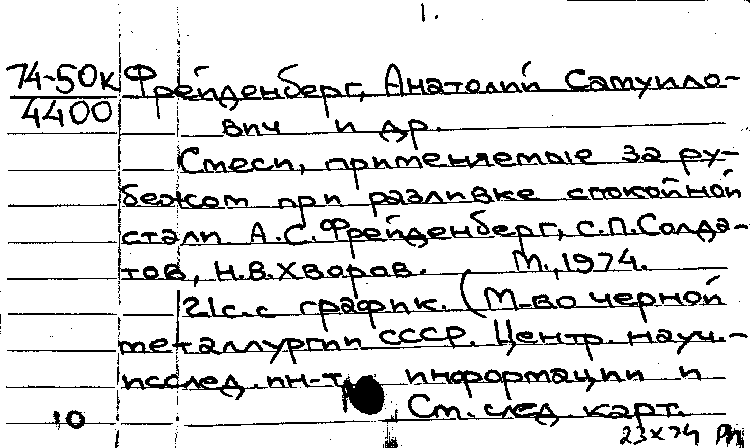 1.
74-50к Фрейденберг, Анатолий Самуило-
4400 вич и др.
Смеси, применяемые за ру-
бежом при разливке спокойной
стали А.С.Фрейденберг, С.П.Солда-
тов, Н.В.Хворов. М., 1974.
21с. с график. (М-во черной
металлургии СССР. Центр. науч.-
исслед. ин-т информации и
10 См. след. карт.
23 X 74